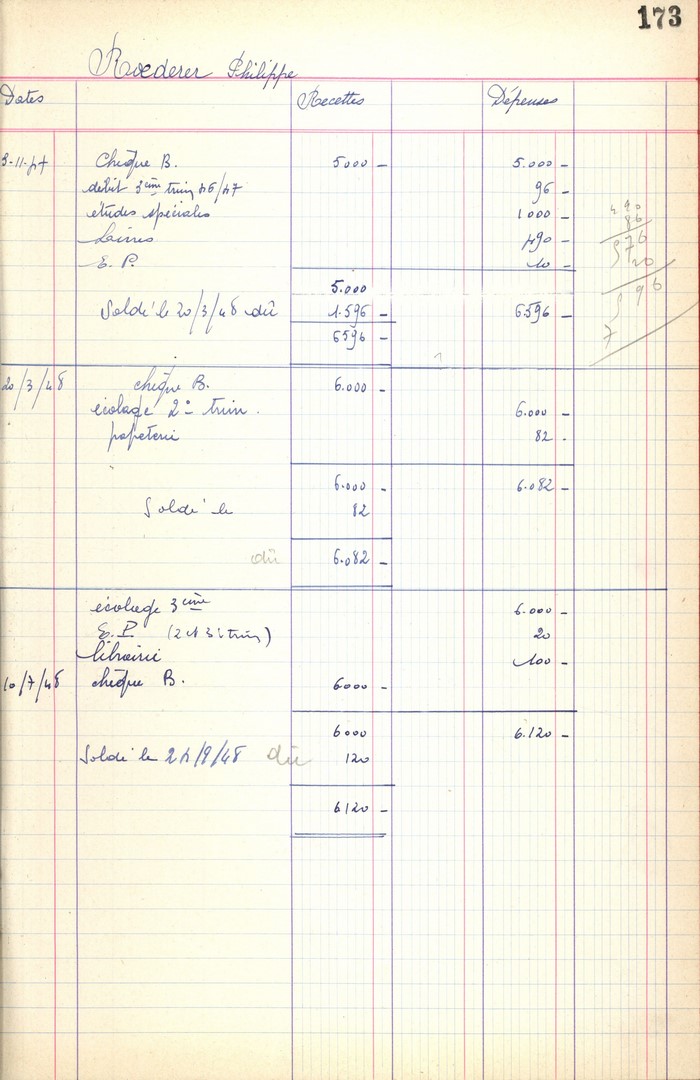 173
Roederer Philippe
Dates Recettes Dépenses
3-11-47 Chèque B. 5000 - 5.000 -
débit 3ème trim 46/47 96 -
études spéciales 1000 -
Livres 490 -
E. P. 10 -
490
86
576
20
596
7
5.000
Soldé le 20/3/48 dû 1.596 - 6596 -
6596 -
20/3/48 chèque B. 6.000 -
écolage 2e trim. 6.000 -
papeterie 82 -
6.000 - 6.082 -
Soldé le 82
dû 6.082 -
écolage 3ème 6.000 -
E. P. (2 et 3e trim) 20
librairie 100 -
10/7/48 chèque B. 6000 -
6000 6.120 -
Soldé le 24/9/48 dû 120
6120 -